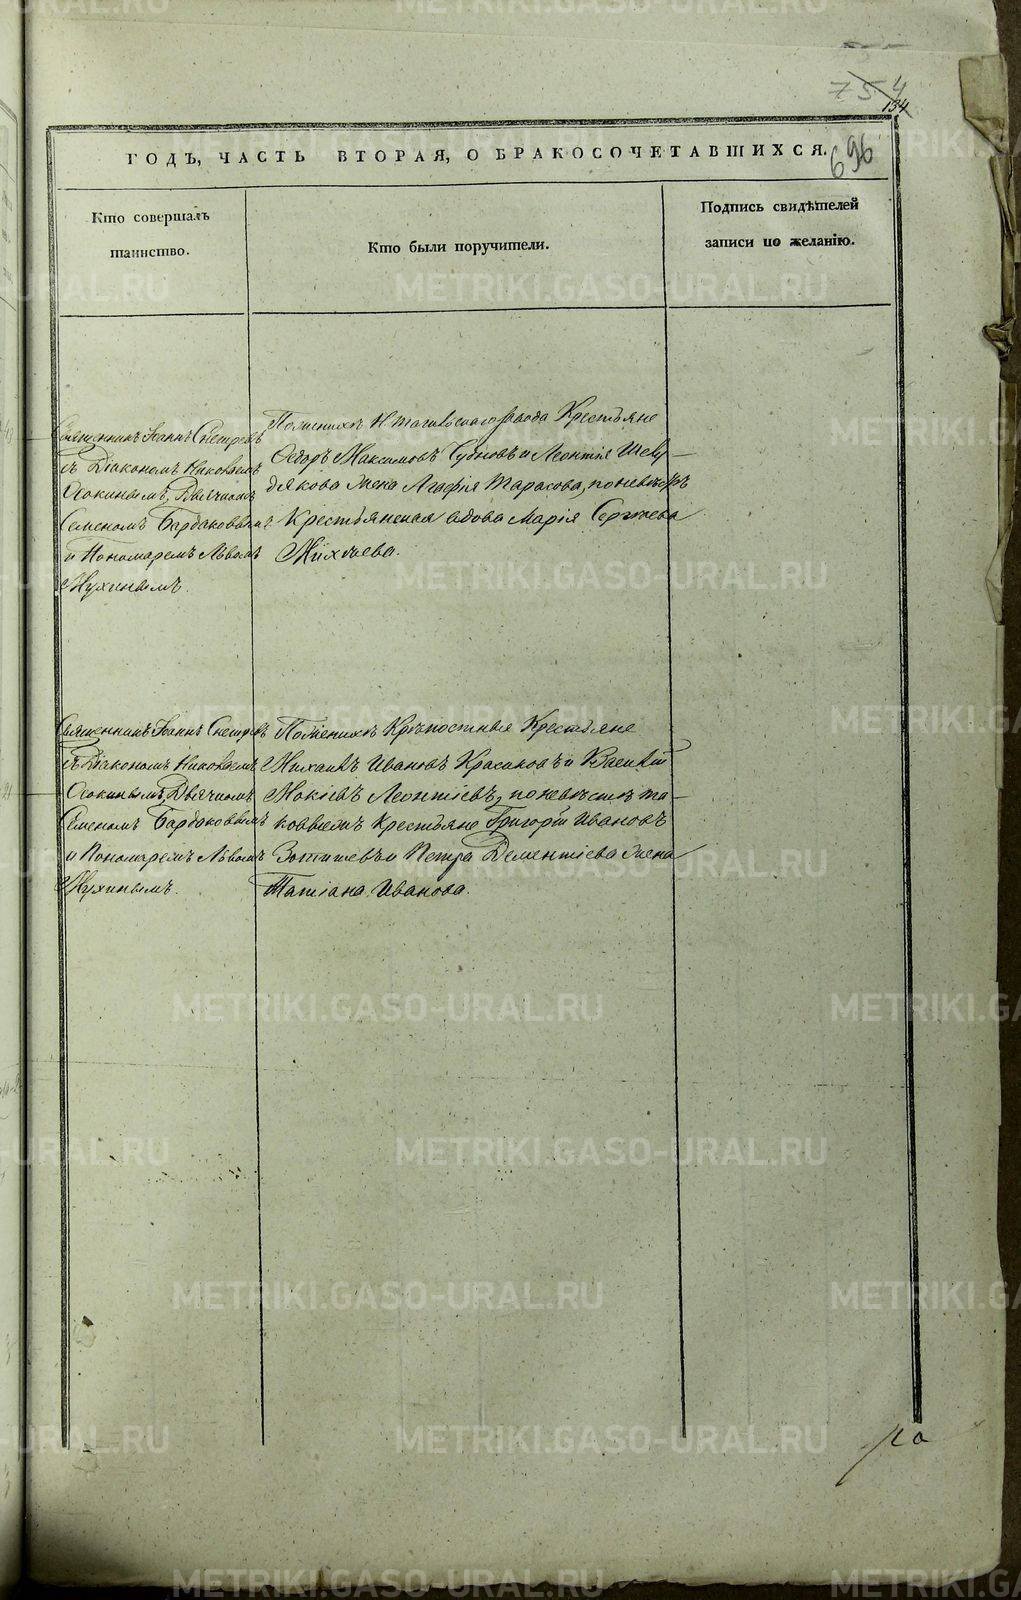 754
134
696
ГОДЪ, ЧАСТЬ ВТОРАЯ, О БРАКОСОЧЕТАВШИХСЯ.
Кто совершалъ
таинство.
Кто были поручители.
Подпись свидѣтелей
записи по желанію.
Священникъ Іоаннъ
съ Діакономъ Николаемъ
Осокинымъ, Дьячкомъ
Семеномъ Бардаковымъ
и Пономаремъ Львомъ
Мухинымъ.
По женихѣ Н. Тагильскаго завода Крестьяне
Ѳедоръ Максимовъ и Леонтія Шев-
дякова жена Агафія Тарасова, по невѣстѣ
Крестьянская вдова Марія Сергѣева
Священникъ Іоаннъ
съ Діакономъ Николаемъ
Осокинымъ, Дьячкомъ
Семеномъ Бардаковымъ
и Пономаремъ Львомъ
Мухинымъ.
По женихѣ Крѣпостныя Крестьяне
Михаилъ Ивановъ Красиковъ и Василій
Мокіевъ Леонтіевъ, по невѣстѣ та-
ковыежъ Крестьяне Григорій Ивановъ
и Петра Дементіева жена
Татіана Иванова.
METRIKI.GASO-URAL.RU